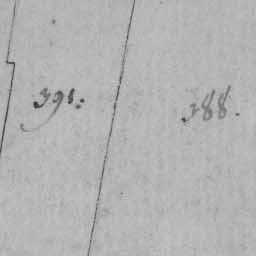 391:
388.